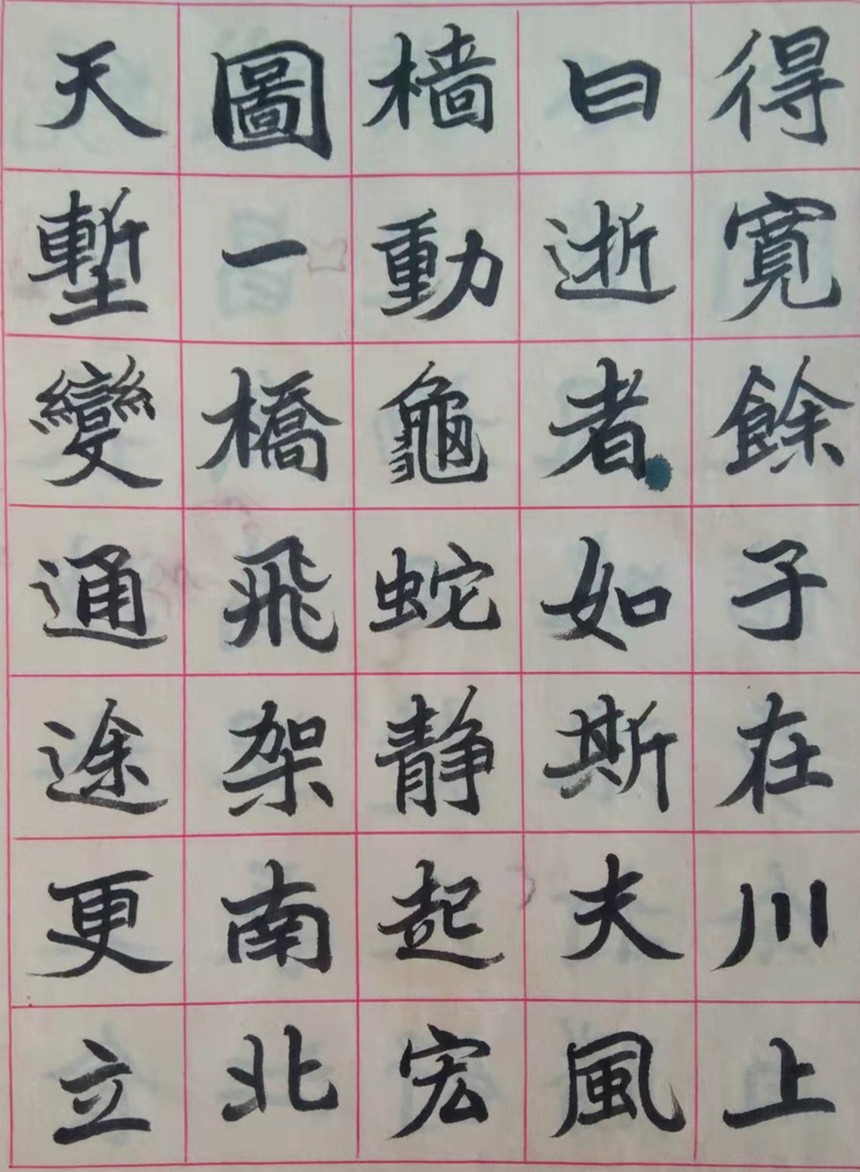 得寬餘子在川上
曰逝者如斯夫風
樯動龜蛇静起宏
圖一橋飛架南北
天塹變通途更立